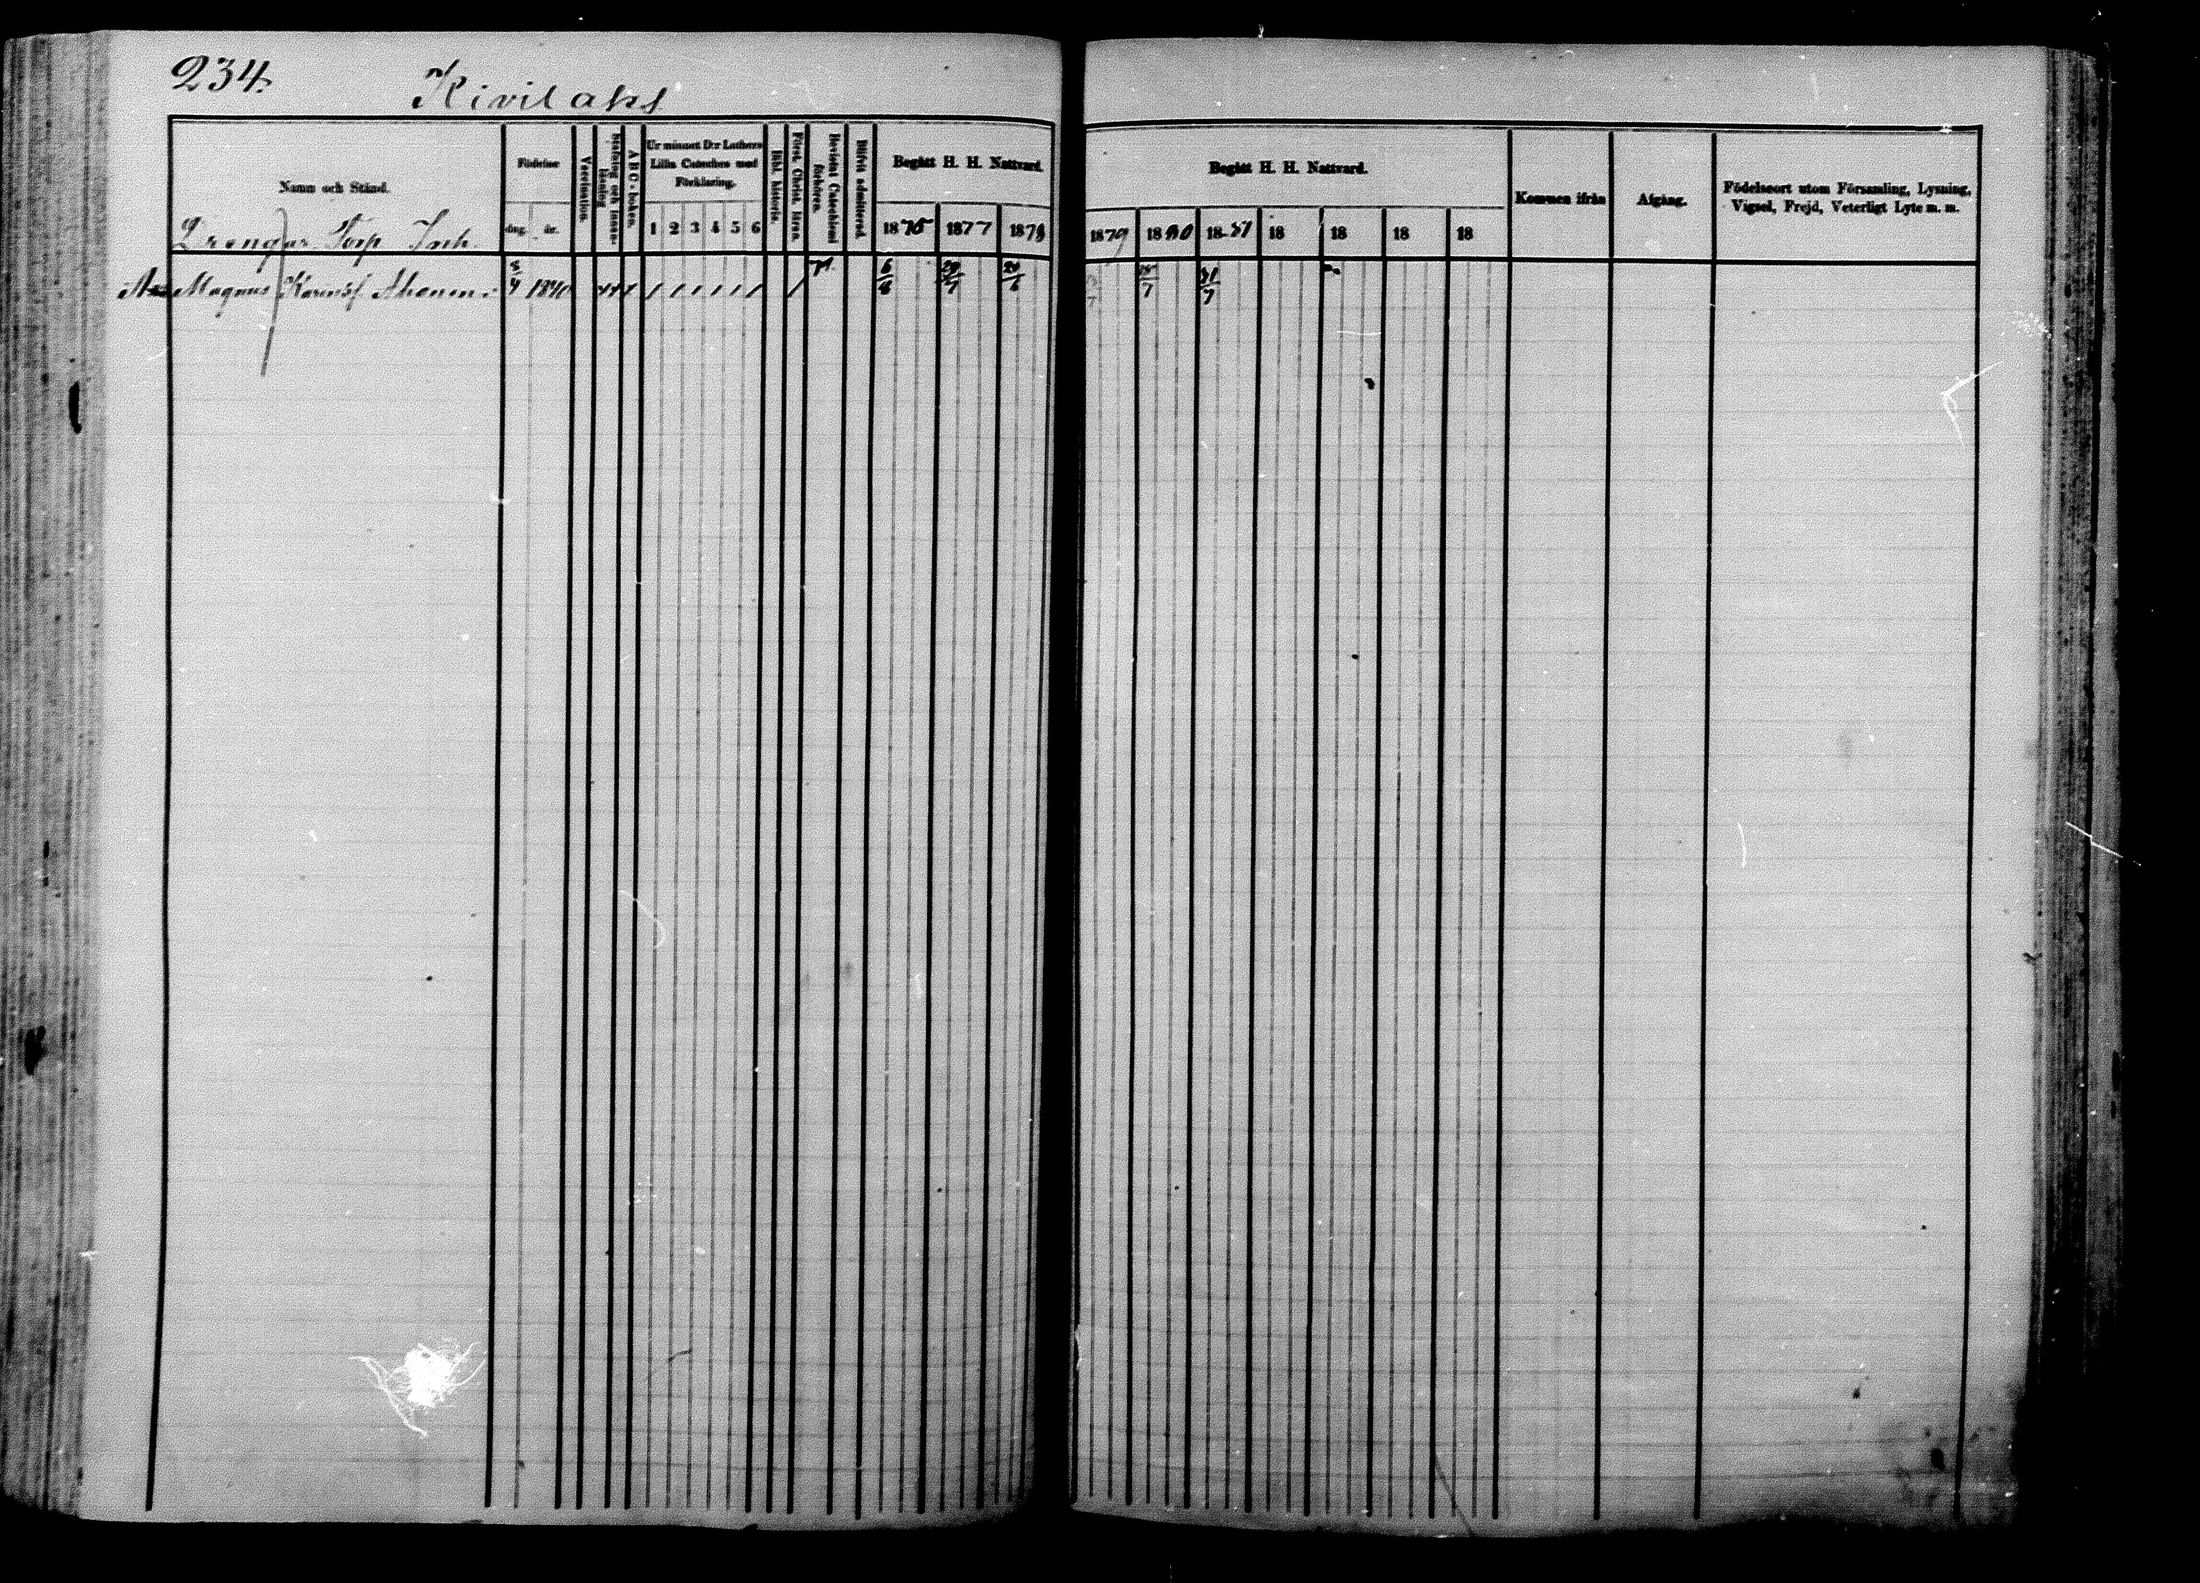 234.
Kivilaks
Namn och Stånd.
Födelse
dag. år.
Vaccination.
Stafning och innanläsning
ABC-boken.
Ur minnet D:r Luthers Lilla Cateches med Förklaring.
1 2 3 4 5 6
Bibl. historia.
Först. Christ. läran.
Bevistat Catechismi förhören.
Blifvit admitterad.
Begått H. H. Nattvard.
1876 1877 1878
Begått H. H. Nattvard.
1879 1880 1881 18 18 18 18
Kommen ifrån
Afgång.
Födelseort utom Församling, Lysning, Vigsel, Frejd, Veterligt Lyte m. m.
Drengar Torp Inh.
Magnus Karinsf Ahonen 1840 6/8 /7 /6 /7 /7 31/7